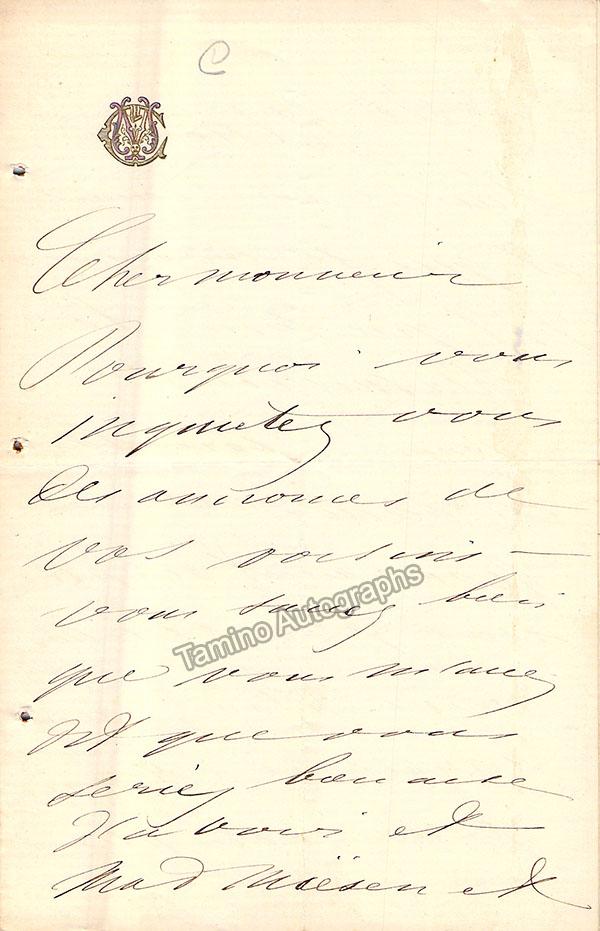 C
Cher monsieur
Pourquoi vous
inquietez vous
des annonces de
vos voisins —
vous savez bien
que vous m'avez
dit que vous
seriez bien aise
d'avoir et
Mad Miësen et
Tamino Autographs